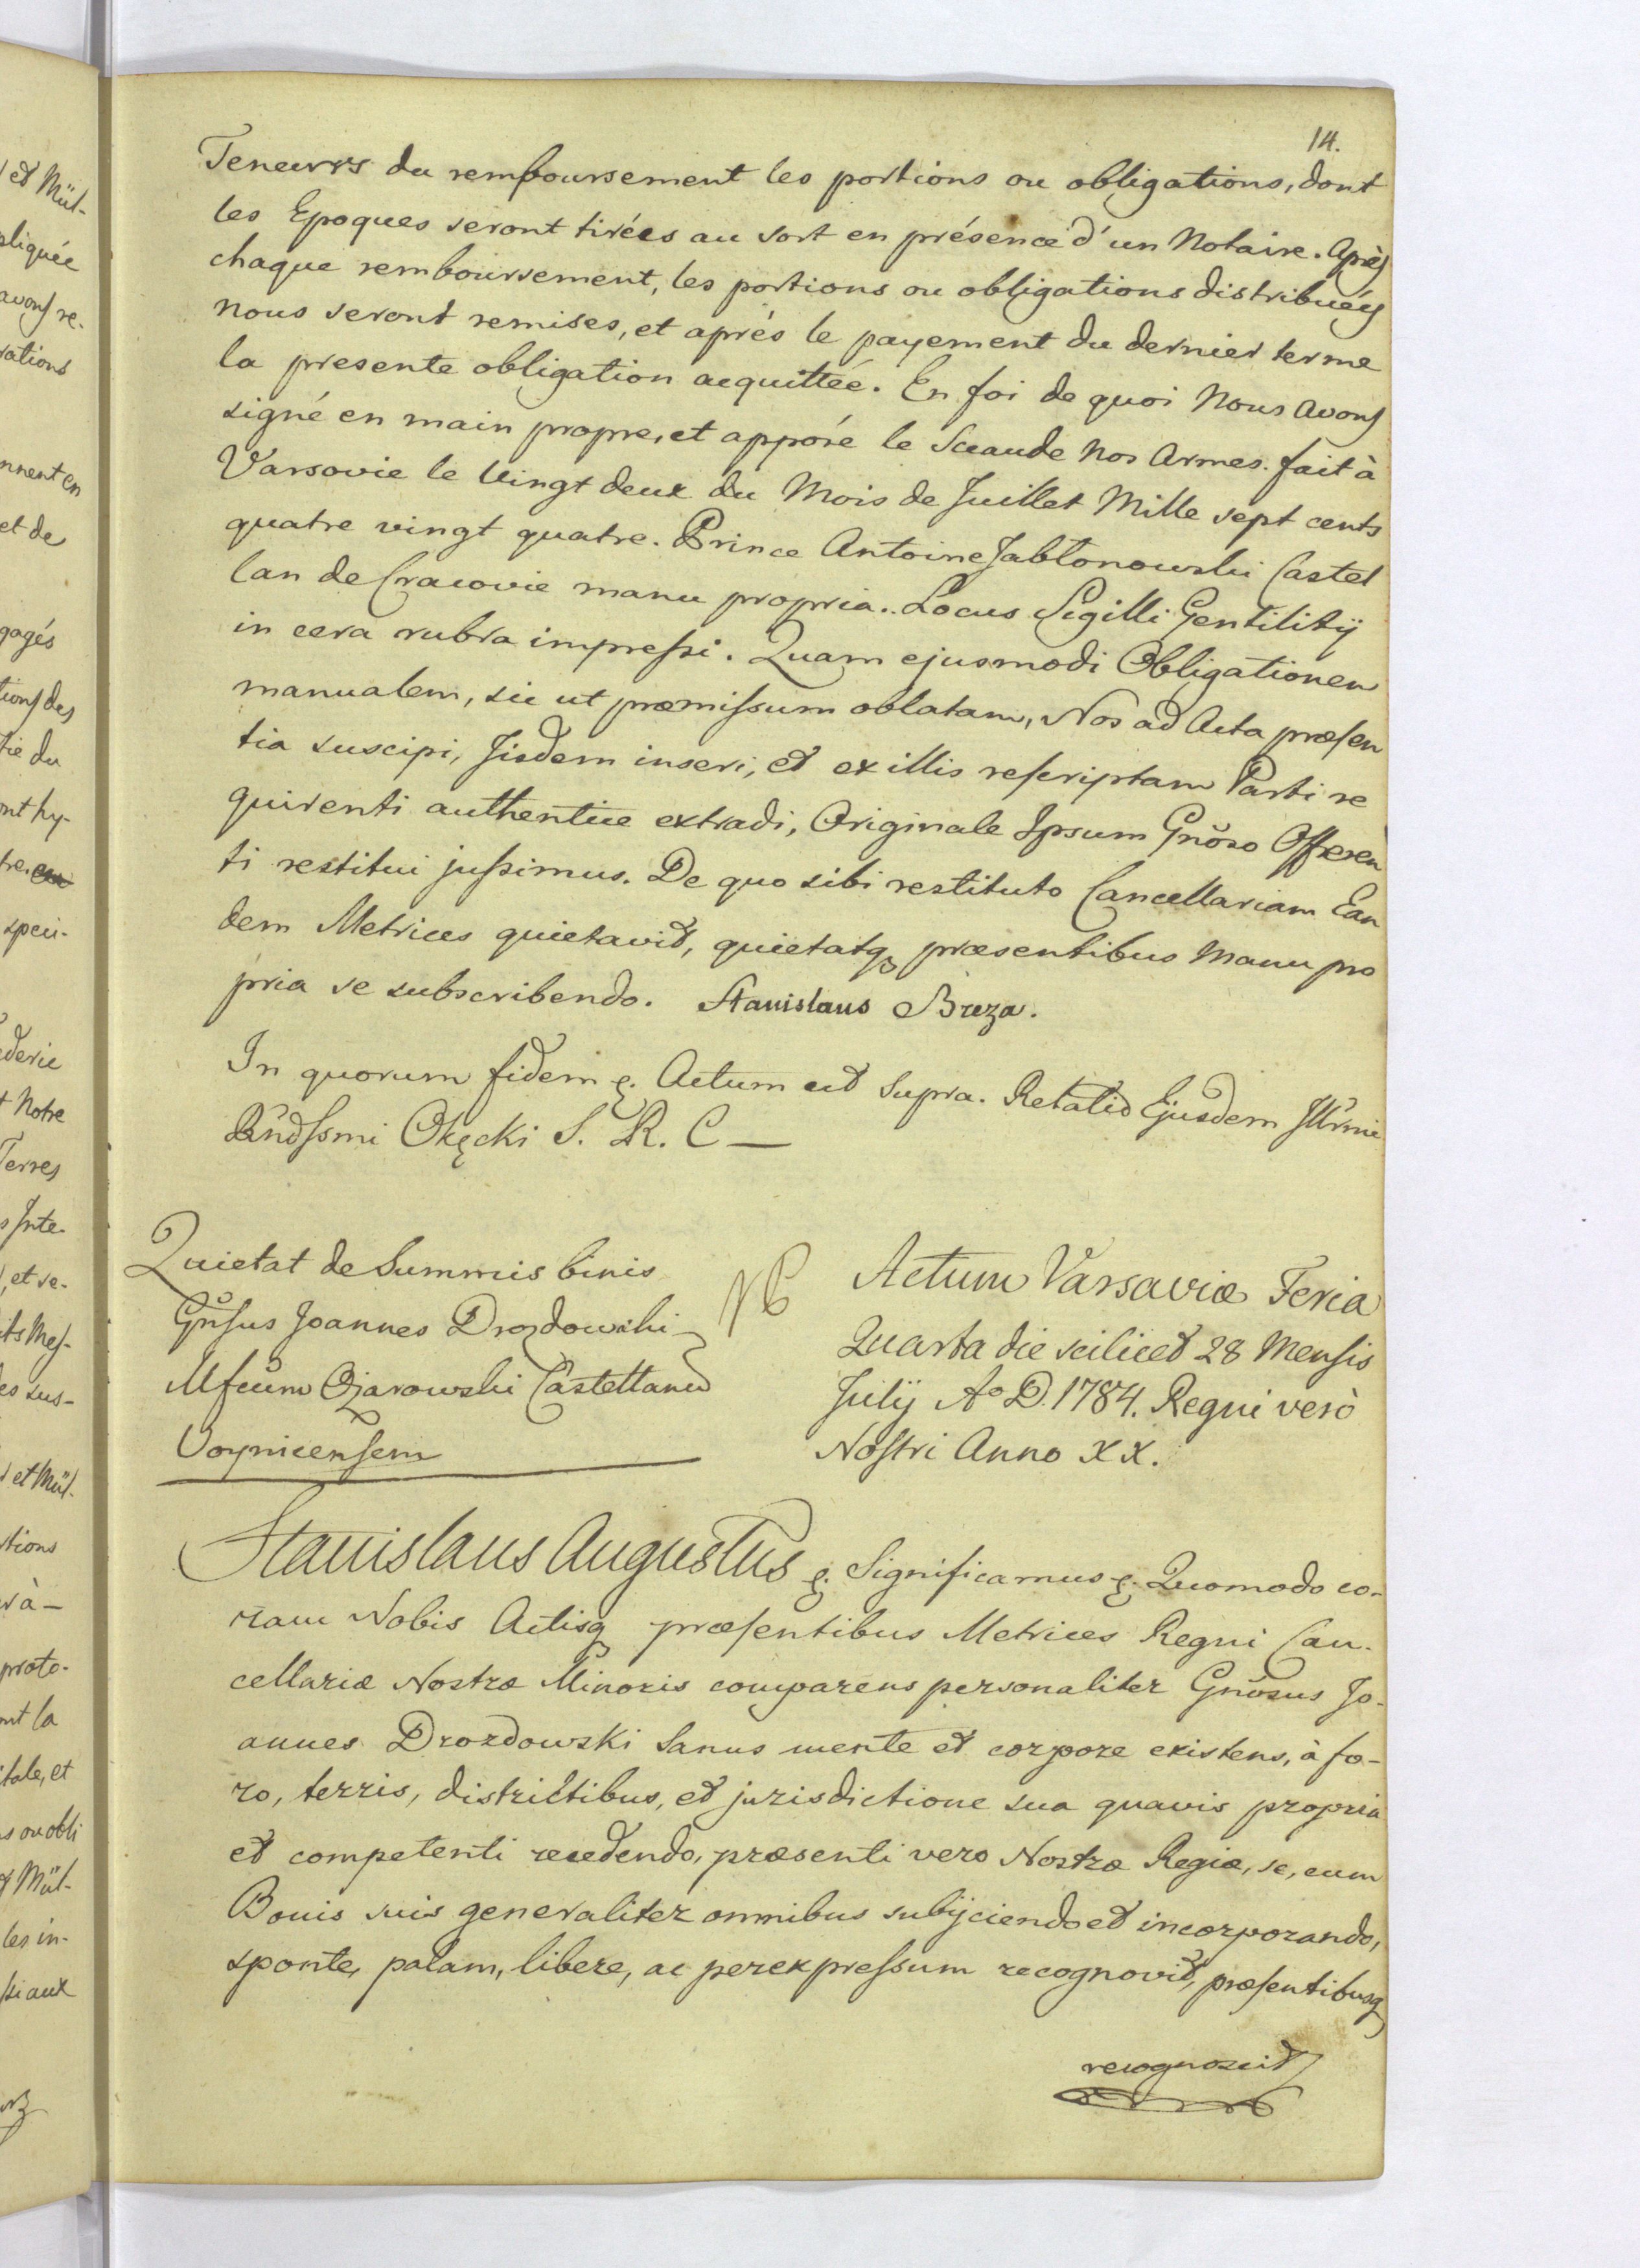 14.
Teneurrs du remboursement les portions ou obligations, dont
les Epoques seront tirées au sort en présence d'un Notaire. Après
chaque remboursement, les portions ou obligations distribuéés
nous seront remises, et aprés le payement du dernier terme
la presente obligation acquittéé. En foi de quoi Nous avons
signé en main propre, et apposé le Sceau de Nos Armes. fait à
Varsovie le Vingt deux du Mois de Juillet Mille sept cents
quatre vingt quatre. Prince Antoine Jabłonowski Castel
lan de Cracovie manu propria.. Locus Sigilli Gentilitÿ
in cera rubra impressi. Quam ejusmodi Obligationem
manualem, sic ut præmissum oblatam, Nos ad Acta præsen
tia suscipi, Jisdem inseri, et ex illis rescriptam Parti re
quirenti authentice extradi, Originale Ipsum Gnöso Offeren
ti restitui jussimus. De quo sibi restituto Cancellariam Ean
dem Metrices quietavit, quietatq præsentibus Manu pro
pria se subscribendo. Stanislaus Breza.
In quorum fidem &. Actum ut Supra. Relatio Ejusdem Jllrmi
Rndssmi Okęcki S. R. C —
Quietat de Summis binis
Gnsus Joannes Drozdowski
Mfcum Ożarowski Castellanu
Voynicensem
NB
Actum Varsaviæ Feria
Quarta die scilicet 28 Mensis
Julÿ Aº D. 1784. Regni verò
Nostri Anno XX.
Stanislaus Augustus &. Significamus &. Quomodo co-
ram Nobis Actisq præsentibus Metrices Regni Can-
cellariæ Nostræ Minoris comparens personaliter Gnosus Jo-
annes Drozdowski Sanus mente et corpore existens, à fo-
ro, terris, districtibus, et jurisdictione sua quavis propria
et competenti recedendo, præsenti vero Nostræ Regiæ, se, cum
Bonis suis generaliter omnibus subÿciendo et incorporando,
sponte, palam, libere, ac per expressum recognovit, præsentibusq
recognoscit